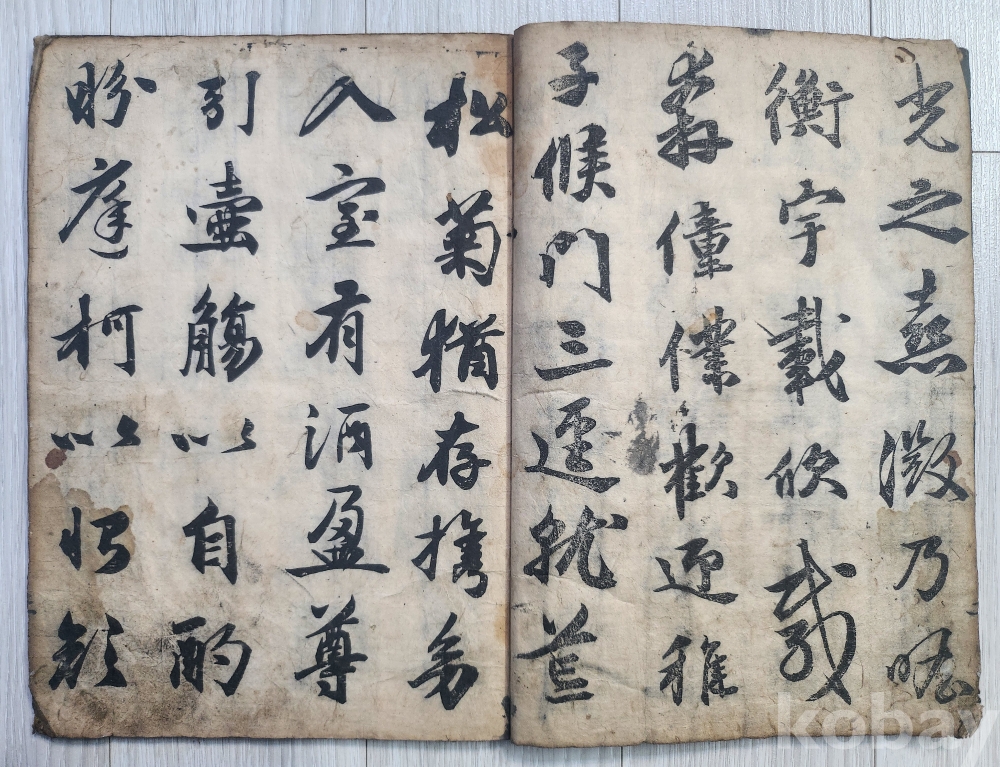 光之熹微乃瞻
衡宇載欣載
奔僮僕歡迎稚
子候門三逕就荒
松菊猶存携幼
入室有酒盈尊
引壺觴以自酌
盼庭柯以怡顔
kobay